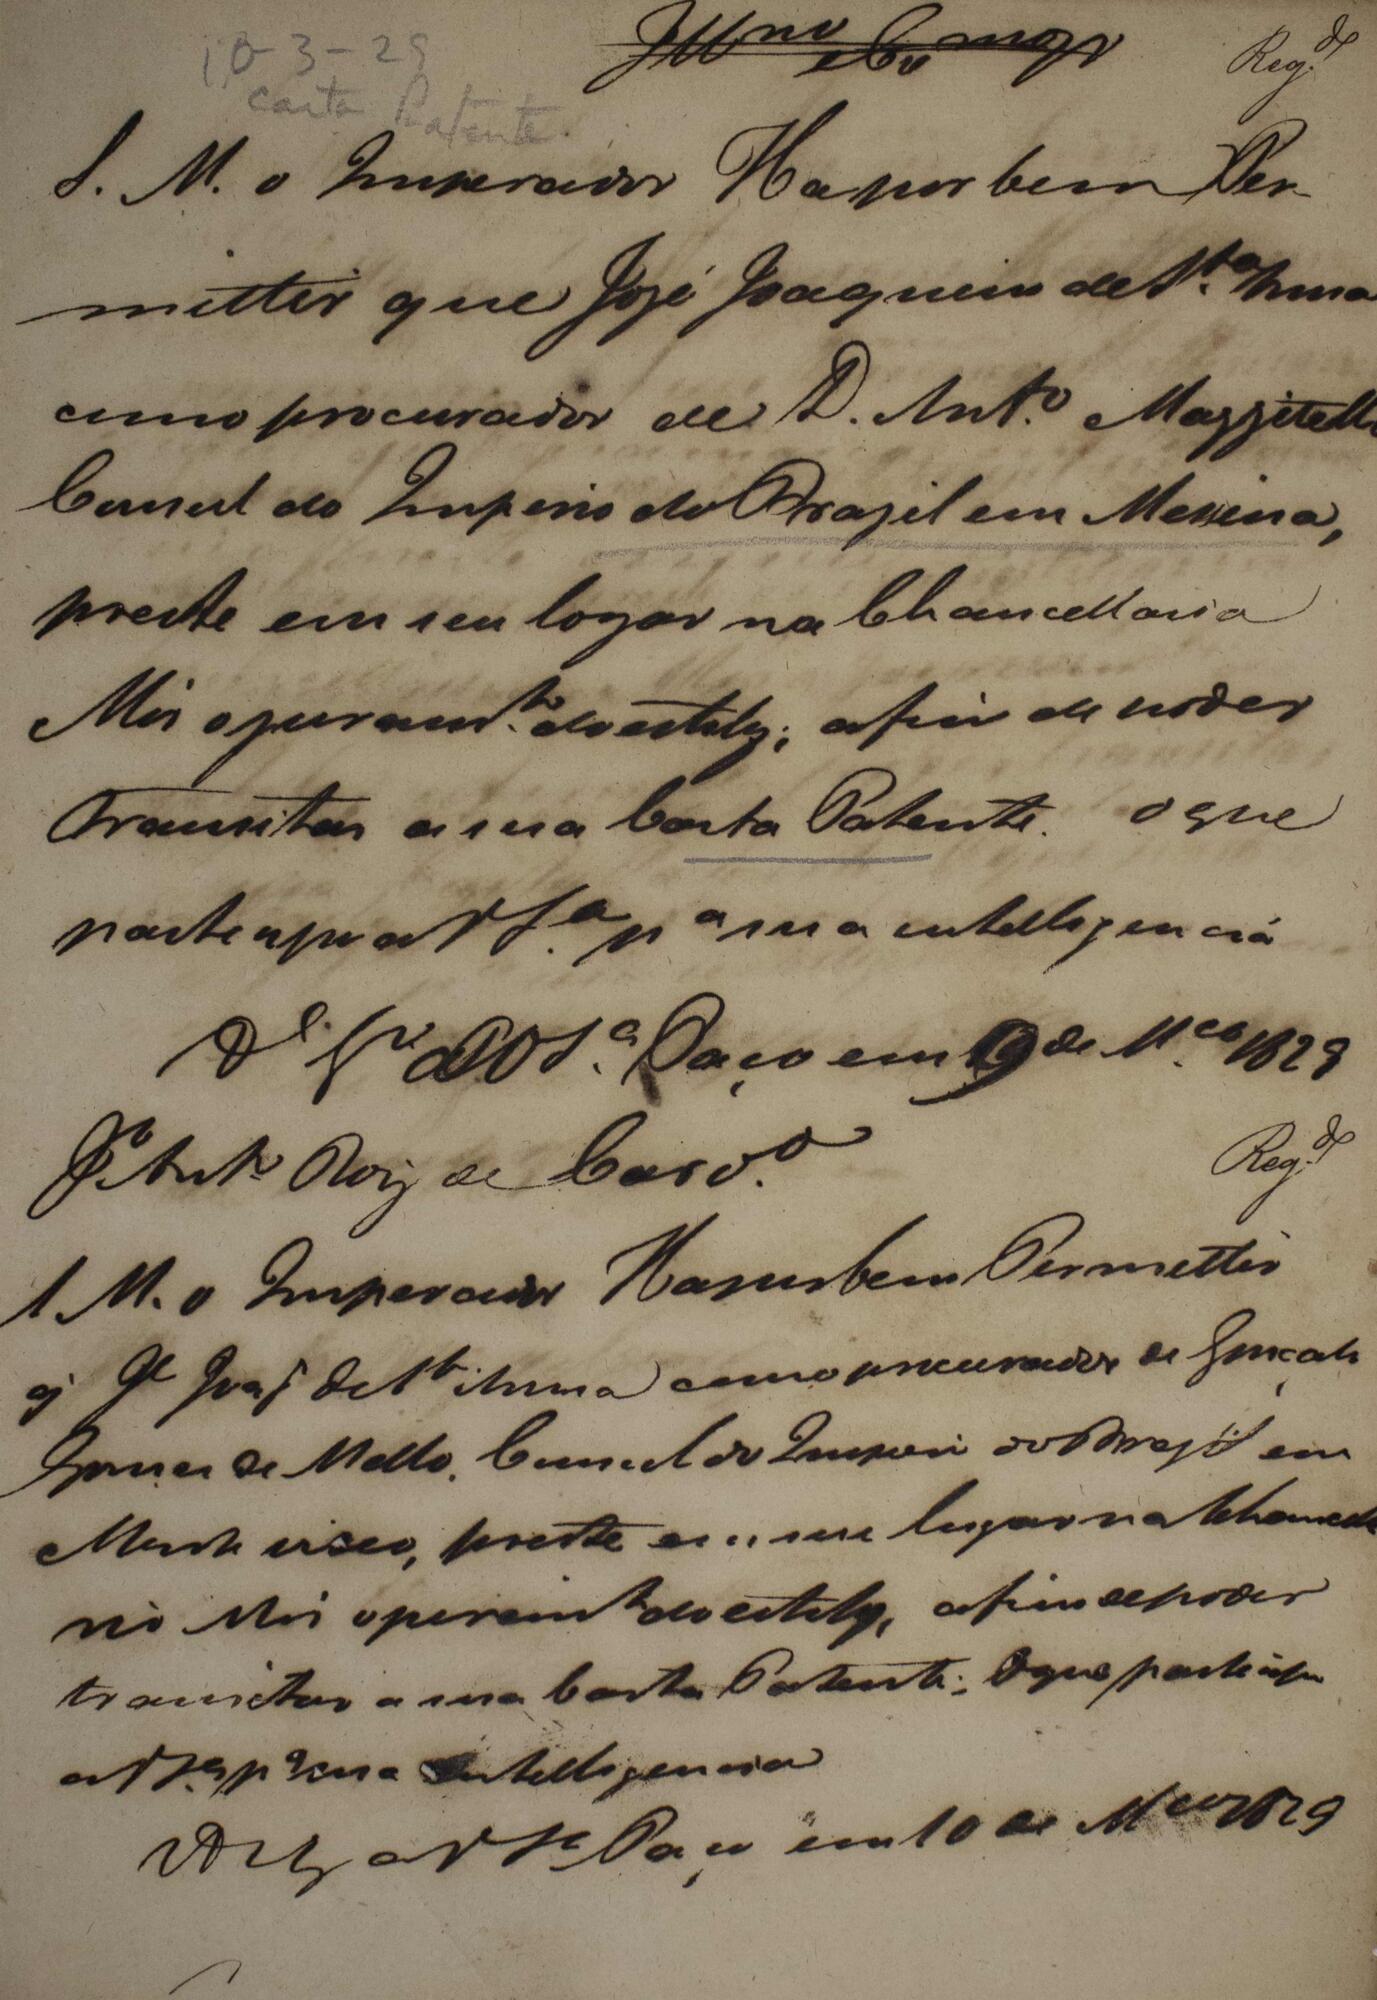 Reg.do
10-3-29
Carta Patente.
S. M. o Imperador Ha por bem Per-
mittir que José Joaquim de S.ta Anna
como procurador de D. Ant.o Mazzitelli
Consul do Imperio do Brazil em Messina,
preste em seu logar na Chancellaria
Mór o juram.to do estilo; afim de poder
transitar a sua Carta Patente. o que
participo a V S.a p.a sua intelligencia
D.s G.e a V S.a Paço em 9 de M.ço 1829
Ant.o Roiz de Carv.o
Reg.do
S M. o Imperador Ha por bem Permittir
q J.e Joaq de S.ta Anna como procurador de Gonçalo
Gomes de Mello, Consul do Imperio do Brazil em
Montevideo, preste em seu lugar na Chancella
ria Mór o juram.to do estilo, afim de poder
transitar a sua Carta Patente; O que participo
a V S.a p.a sua intelligencia
D G a V S.a Paço em 10 de M.ço 1829